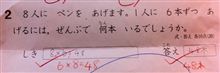 2 8人に ペンを あげます。1人に 6本ずつ あ
げるには，ぜんぶで 何本 いるでしょうか。
しき 8×6=48 答え
6×8=48 48本